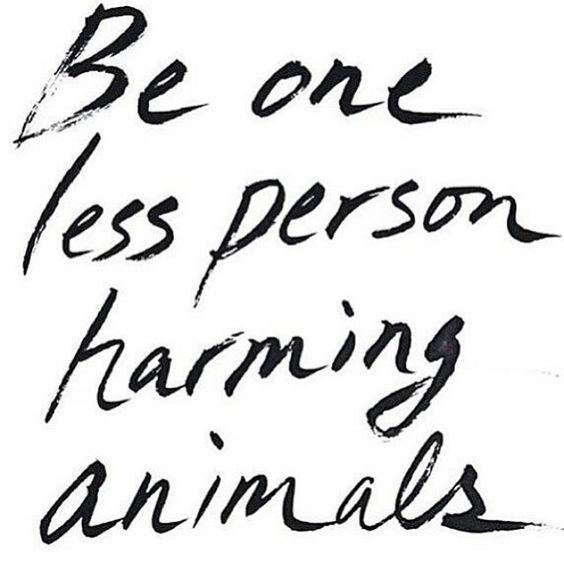 Be one
less person
harming
animals